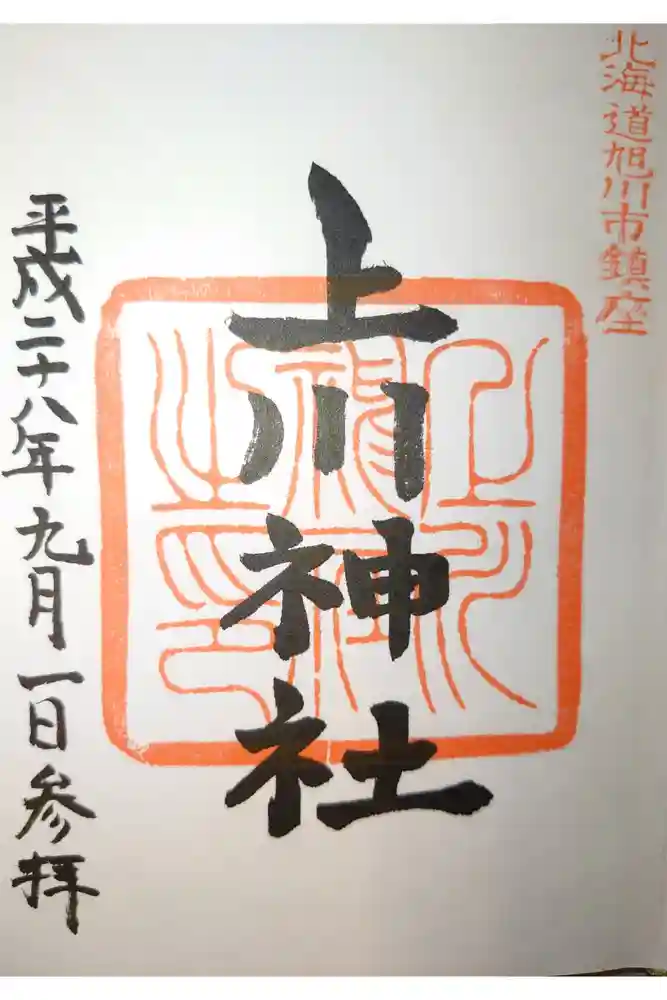 北海道旭川市鎮座
上川神社
上川神社之印
平成二十八年九月一日参拝